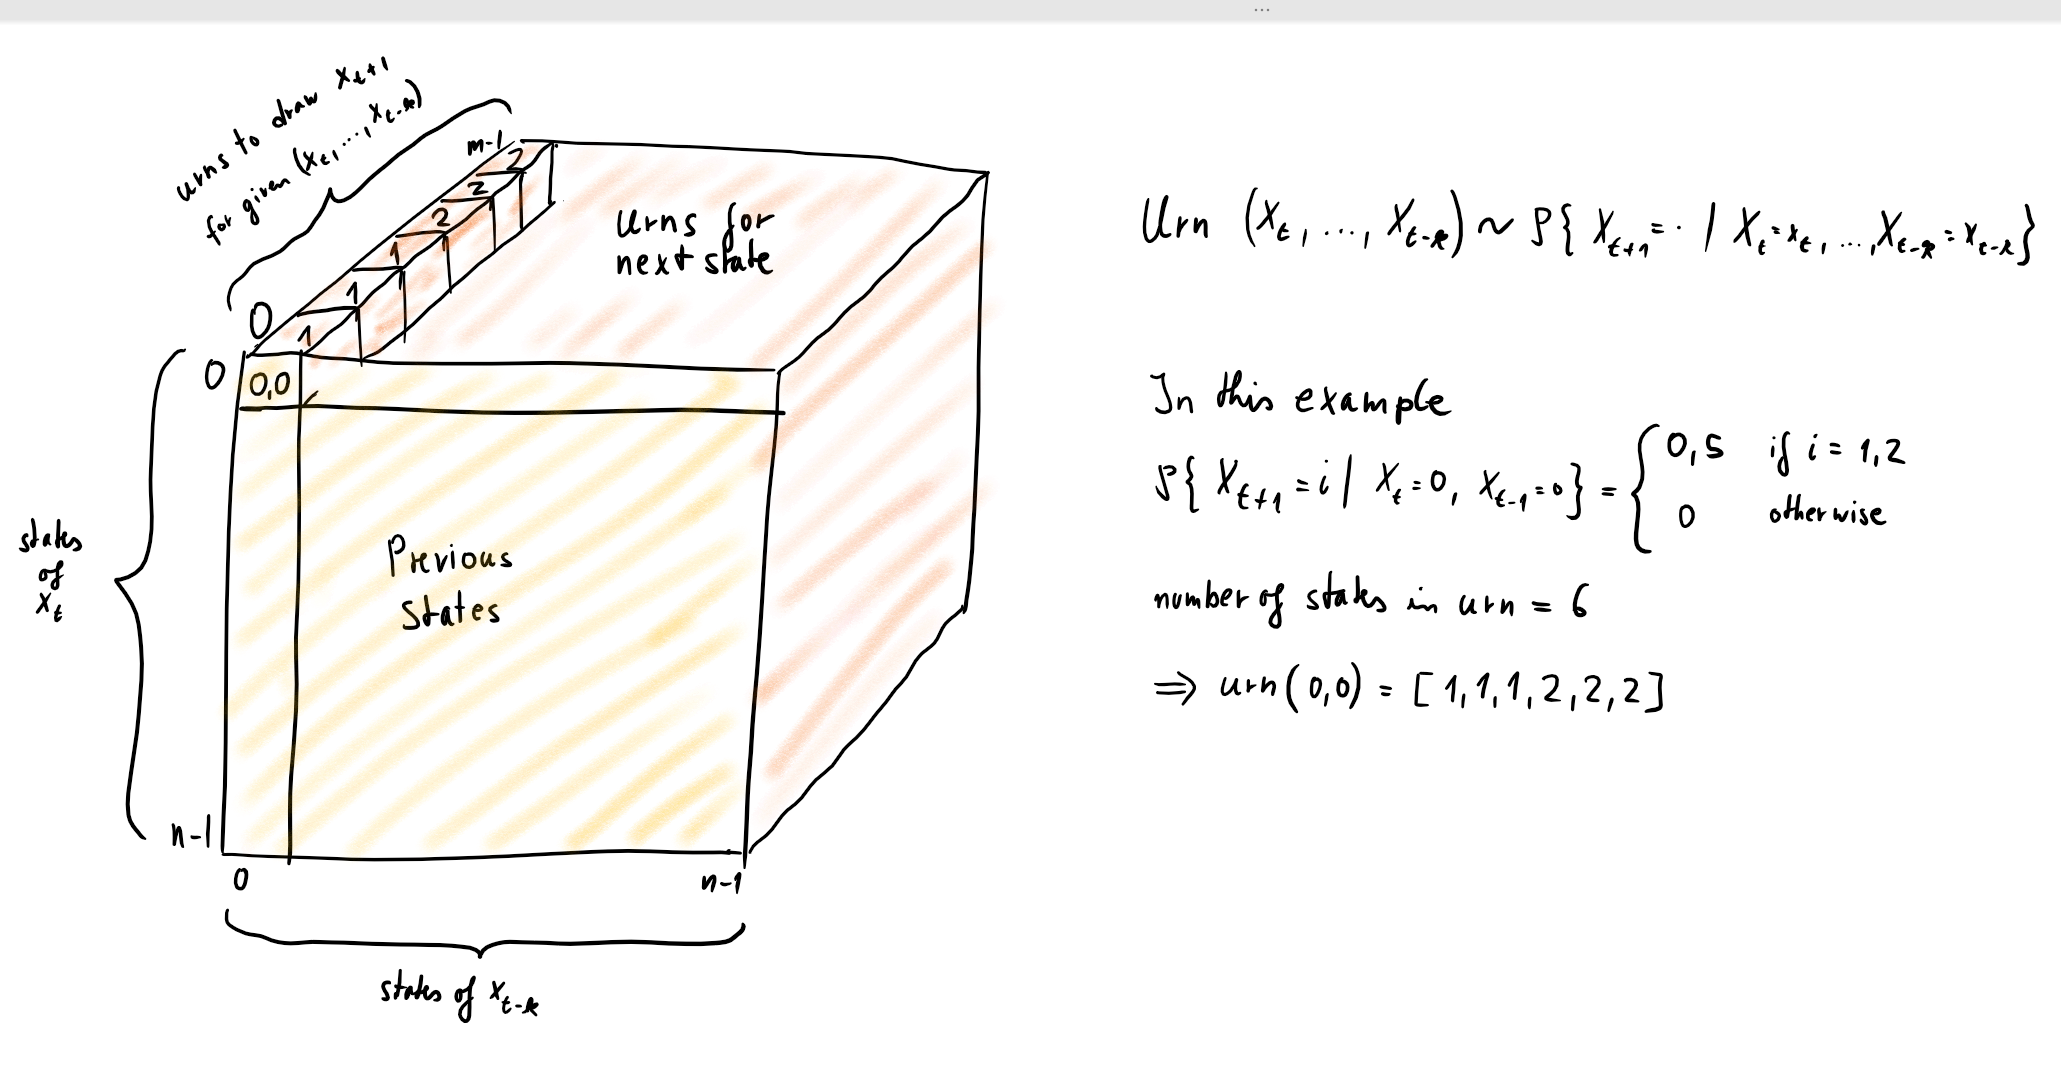 ...
urns to draw x_{t+1}
for given (x_t, ..., x_{t-k})
m-1
2
2
2
1
1
1
0
urns for
next state
0
0,0
states
of
x_t
Previous
states
n-1
0
n-1
states of x_{t-k}
Urn (x_t, ..., x_{t-k}) ~ P{ X_{t+1} = · | X_t = x_t, ..., X_{t-k} = x_{t-k} }
In this example
P{ X_{t+1} = i | X_t = 0, X_{t-1} = 0 } = { 0,5 if i = 1,2
0 otherwise
number of states in urn = 6
⇒ urn(0,0) = [1,1,1,2,2,2]